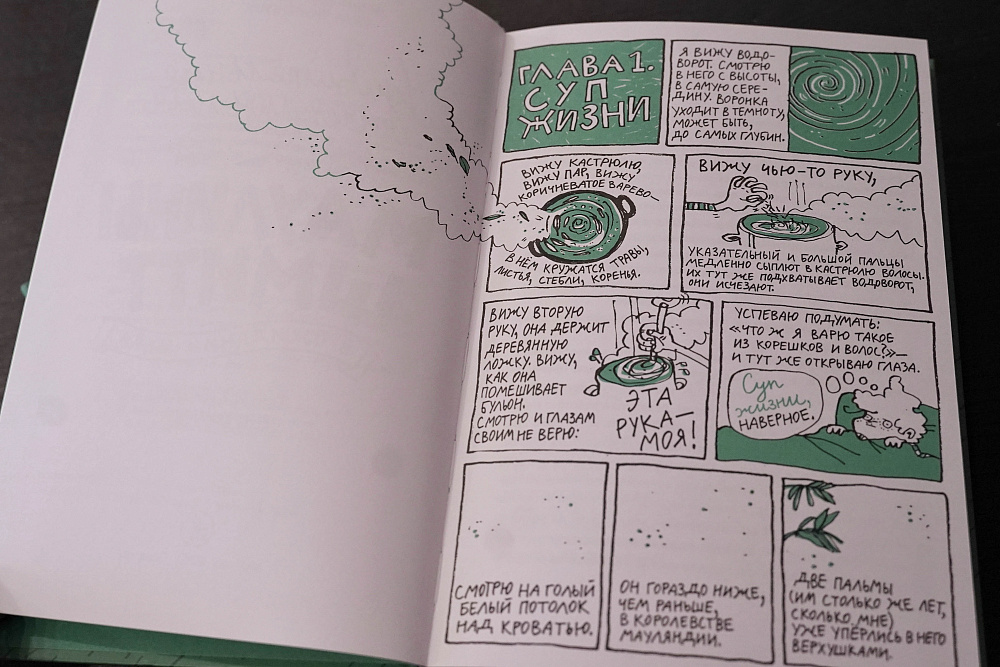 ГЛАВА 1.
СУП
ЖИЗНИ
Я ВИЖУ ВОДО-
ВОРОТ. СМОТРЮ
В НЕГО С ВЫСОТЫ,
В САМУЮ СЕРЕ-
ДИНУ. ВОРОНКА
УХОДИТ В ТЕМНОТУ,
МОЖЕТ БЫТЬ,
ДО САМЫХ ГЛУБИН.
ВИЖУ КАСТРЮЛЮ,
ВИЖУ ПАР, ВИЖУ
КОРИЧНЕВАТОЕ ВАРЕВО–
В НЁМ КРУЖАТСЯ ТРАВЫ,
ЛИСТЬЯ, СТЕБЛИ, КОРЕНЬЯ.
ВИЖУ ЧЬЮ-ТО РУКУ,
УКАЗАТЕЛЬНЫЙ И БОЛЬШОЙ ПАЛЬЦЫ
МЕДЛЕННО СЫПЛЮТ В КАСТРЮЛЮ ВОЛОСЫ.
ИХ ТУТ ЖЕ ПОДХВАТЫВАЕТ ВОДОВОРОТ,
ОНИ ИСЧЕЗАЮТ.
ВИЖУ ВТОРУЮ
РУКУ, ОНА ДЕРЖИТ
ДЕРЕВЯННУЮ
ЛОЖКУ. ВИЖУ,
КАК ОНА
ПОМЕШИВАЕТ
БУЛЬОН.
СМОТРЮ И ГЛАЗАМ
СВОИМ НЕ ВЕРЮ:
ЭТА
РУКА–
МОЯ!
УСПЕВАЮ ПОДУМАТЬ:
«ЧТО Ж Я ВАРЮ ТАКОЕ
ИЗ КОРЕШКОВ И ВОЛОС?»–
И ТУТ ЖЕ ОТКРЫВАЮ ГЛАЗА.
Суп
жизни,
НАВЕРНОЕ.
СМОТРЮ НА ГОЛЫЙ
БЕЛЫЙ ПОТОЛОК
НАД КРОВАТЬЮ.
ОН ГОРАЗДО НИЖЕ,
ЧЕМ РАНЬШЕ,
В КОРОЛЕВСТВЕ
МАУЛЯНДИИ.
ДВЕ ПАЛЬМЫ
(ИМ СТОЛЬКО ЖЕ ЛЕТ,
СКОЛЬКО МНЕ)
УЖЕ УПЁРЛИСЬ В НЕГО
ВЕРХУШКАМИ.